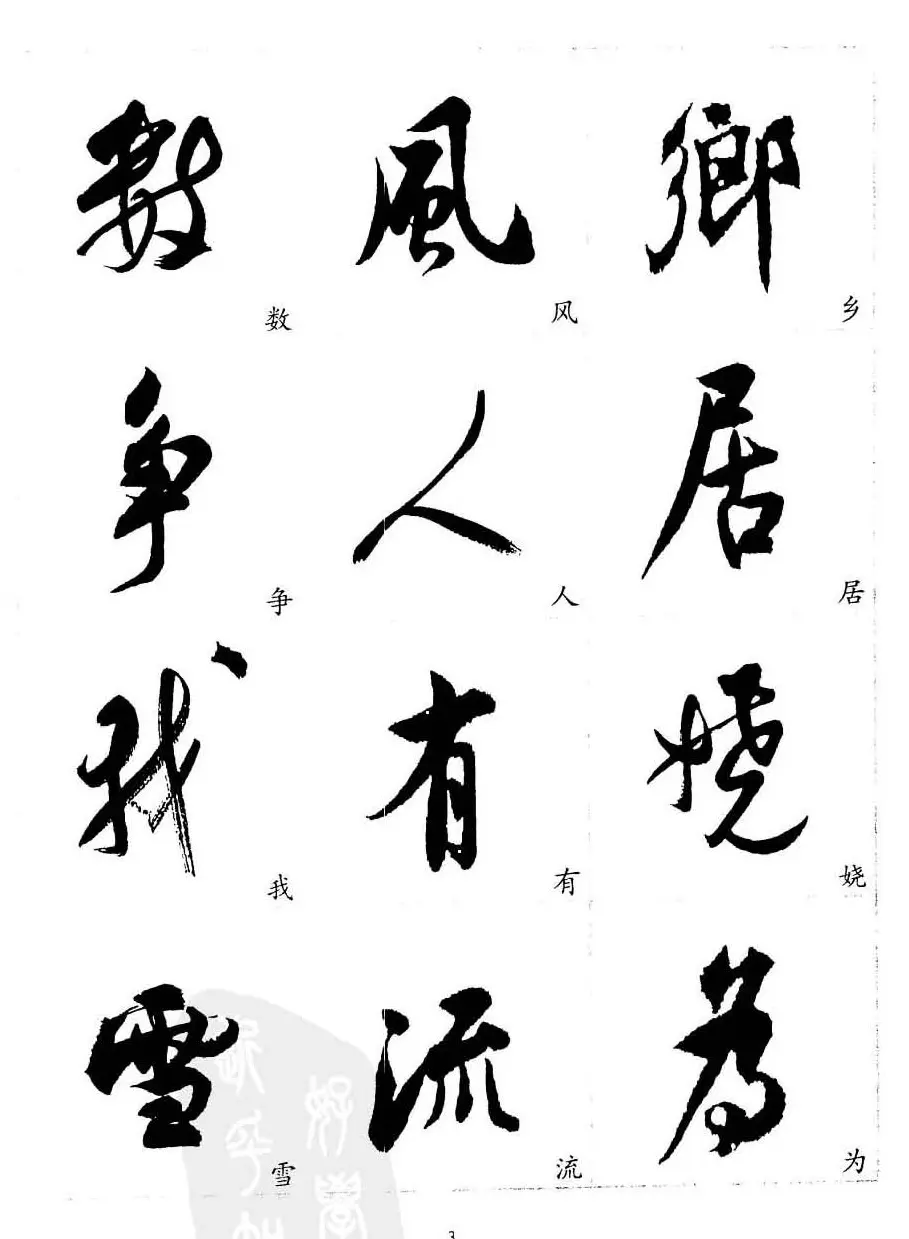 鄉 乡
居 居
嬈 娆
為 为
風 风
人 人
有 有
流 流
數 数
争 争
我 我
雪 雪
3